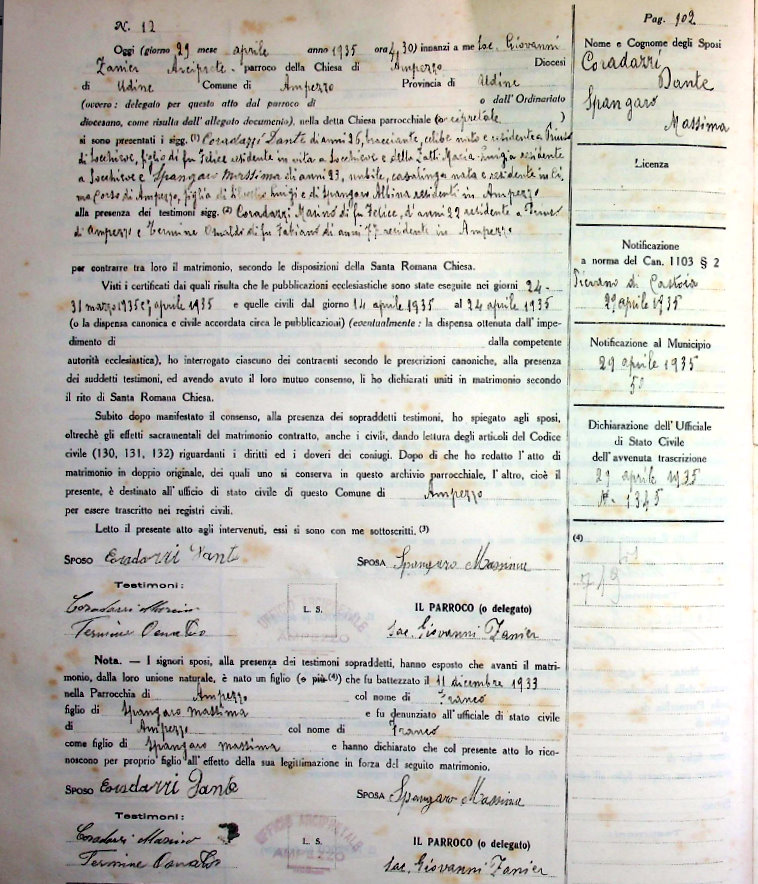 N. 12
Oggi (giorno 29 mese aprile anno 1935 ora 4,30) innanzi a me Sac. Giovanni
Zanier Arciprete parroco della Chiesa di Ampezzo Diocesi
di Udine Comune di Ampezzo Provincia di Udine
(ovvero: delegato per questo atto dal parroco di o dall'Ordinariato
diocesano, come risulta dall'allegato documento), nella detta Chiesa parrocchiale (o )
si sono presentati i sigg. (1) Coradazzi Dante di anni 26, bracciante, celibe nato e residente a
di Socchieve, figlio di fu Felice residente in vita a Socchieve e della Zatti Maria Luigia residente
a Socchieve e Spangaro Massima di anni 23, nubile, casalinga nata e residente in
Corso di Ampezzo, figlia di Luigi e di Spangaro Albina residenti in Ampezzo
alla presenza dei testimoni sigg. (2) Coradazzi Marino di fu Felice, d'anni 22 residente a
di Ampezzo e Termine Osualdo di fu Fabiano di anni 77 residente in Ampezzo
per contrarre tra loro il matrimonio, secondo le disposizioni della Santa Romana Chiesa.
Visti i certificati dai quali risulta che le pubblicazioni ecclesiastiche sono state eseguite nei giorni 24-
31 marzo 1935 e 7 aprile 1935 e quelle civili dal giorno 14 aprile 1935 al 24 aprile 1935
(o la dispensa canonica e civile accordata circa le pubblicazioni) (eventualmente: la dispensa ottenuta dall'impe-
dimento di dalla competente
autorità ecclesiastica), ho interrogato ciascuno dei contraenti secondo le prescrizioni canoniche, alla presenza
dei suddetti testimoni, ed avendo avuto il loro mutuo consenso, li ho dichiarati uniti in matrimonio secondo
il rito di Santa Romana Chiesa.
Subito dopo manifestato il consenso, alla presenza dei sopraddetti testimoni, ho spiegato agli sposi,
oltrechè gli effetti sacramentali del matrimonio contratto, anche i civili, dando lettura degli articoli del Codice
civile (130, 131, 132) riguardanti i diritti ed i doveri dei coniugi. Dopo di che ho redatto l'atto di
matrimonio in doppio originale, dei quali uno si conserva in questo archivio parrocchiale, l'altro, cioè il
presente, è destinato all'ufficio di stato civile di questo Comune di Ampezzo
per essere trascritto nei registri civili.
Letto il presente atto agli intervenuti, essi si sono con me sottoscritti. (3)
SPOSO Coradazzi Dante SPOSA Spangaro Massima
Testimoni:
Coradazzi Marino L. S. IL PARROCO (o delegato)
Termine Osualdo Sac. Giovanni Zanier
UFFICIO ARCIPRETALE
AMPEZZO
Nota. — I signori sposi, alla presenza dei testimoni sopraddetti, hanno esposto che avanti il matri-
monio, dalla loro unione naturale, è nato un figlio (o più (4)) che fu battezzato il 11 dicembre 1933
nella Parrocchia di Ampezzo col nome di Franco
figlio di Spangaro Massima e fu denunziato all'ufficiale di stato civile
di Ampezzo col nome di Franco
come figlio di Spangaro Massima e hanno dichiarato che col presente atto lo rico-
noscono per proprio figlio all'effetto della sua legittimazione in forza del seguito matrimonio.
SPOSO Coradazzi Dante SPOSA Spangaro Massima
Testimoni:
Coradazzi Marino L. S. IL PARROCO (o delegato)
Termine Osualdo Sac. Giovanni Zanier
UFFICIO ARCIPRETALE
AMPEZZO
Pag. 102
Nome e Cognome degli Sposi
Coradazzi
Dante
Spangaro
Massima
Licenza
Notificazione
a norma del Can. 1103 § 2
Pievano di Castoia
29 aprile 1935
Notificazione al Municipio
29 aprile 1935
50
Dichiarazione dell'Ufficiale
di Stato Civile
dell'avvenuta trascrizione
29 aprile 1935
N. 1345
(4)